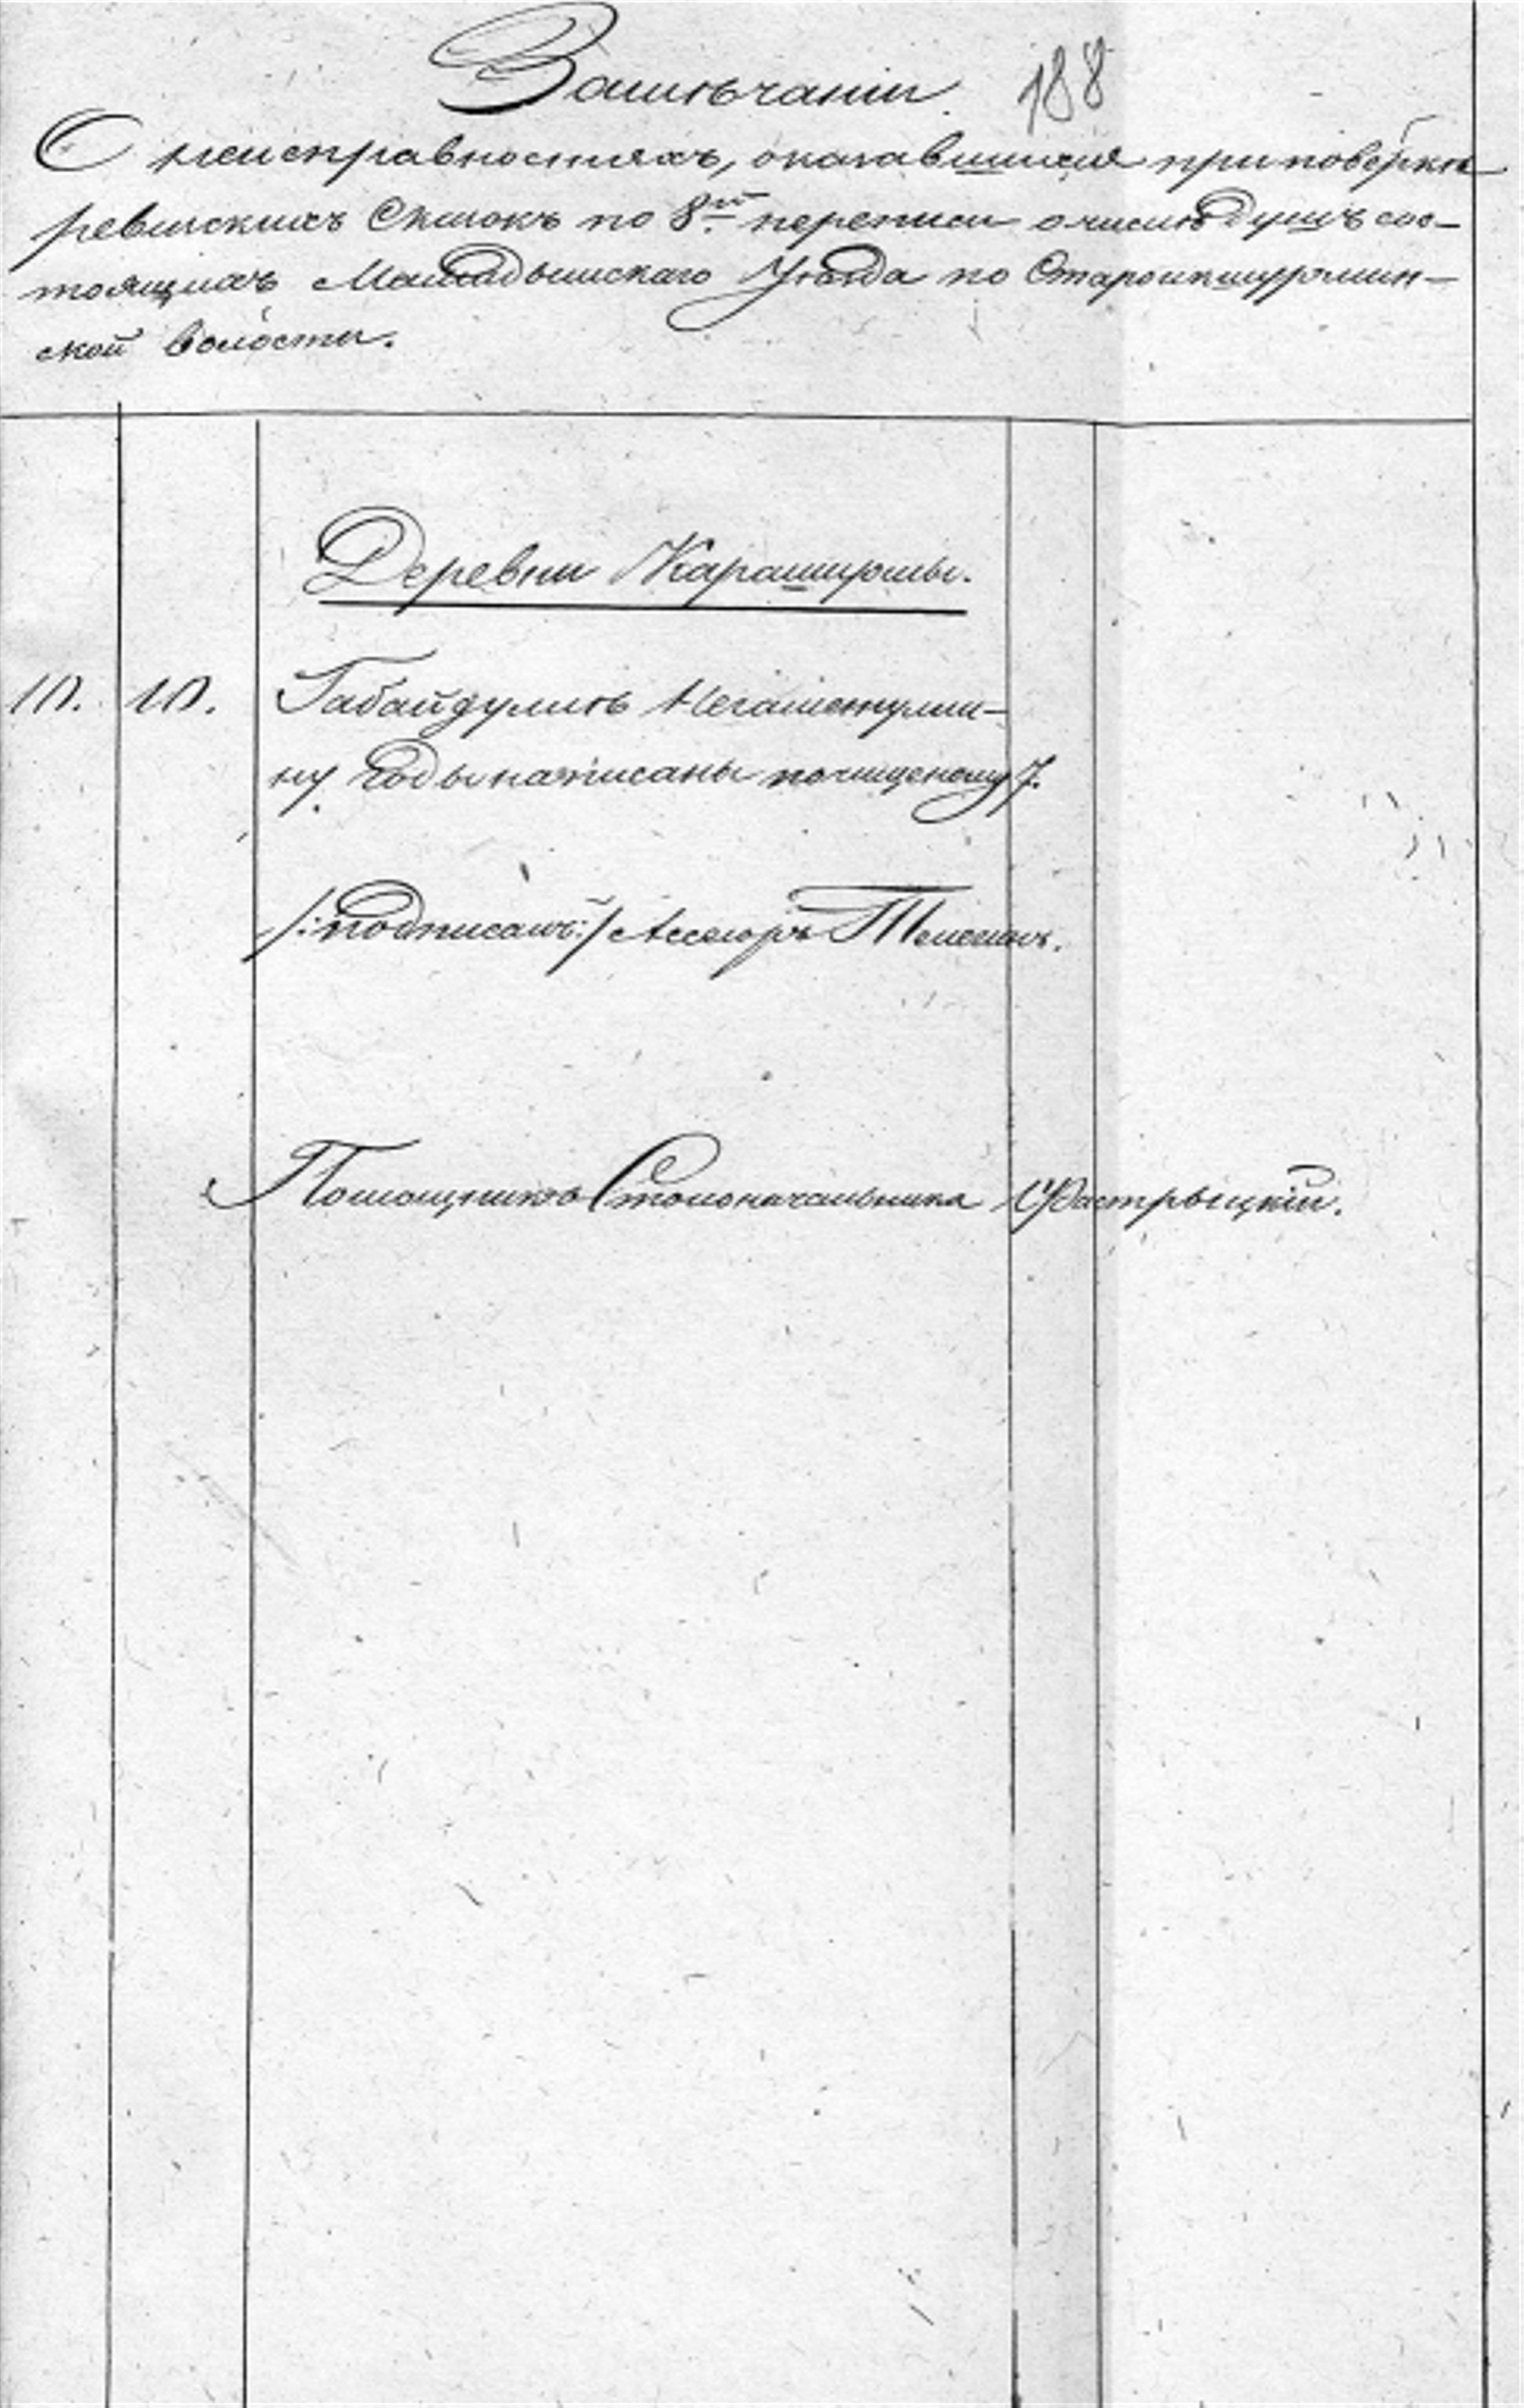 Замѣчаніи 188
О неисправностяхъ, оказавшихся при повѣркѣ
ревизскихъ Сказокъ по 8й переписи о числѣ душъ сос-
тоящихъ Мамадышскаго Уѣзда по Староикшурмин-
ской волости.
Деревни Карашурмы.
10. 10. Габайдулѣ Негаметулли-
ну годы написаны почищеному 7.
/:подписалъ:/ Ассесоръ
Помощникъ Столоначальника